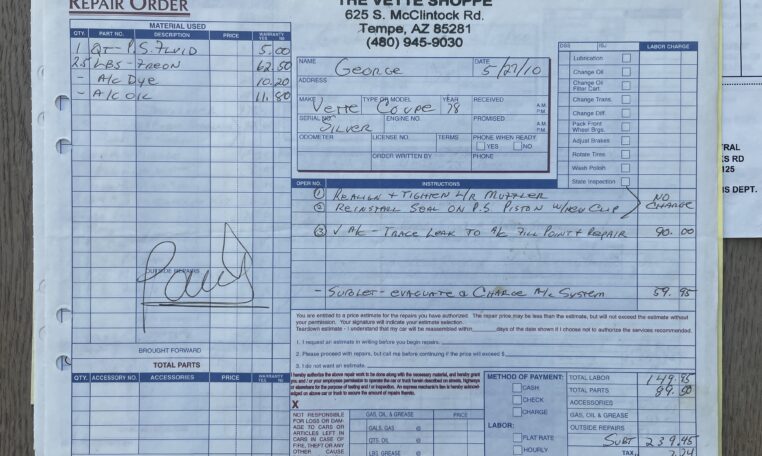 REPAIR ORDER
THE VETTE SHOPPE
625 S. McClintock Rd.
Tempe, AZ 85281
(480) 945-9030
MATERIAL USED
QTY. PART NO. DESCRIPTION PRICE WARRANTY YES NO
1 QT - P.S. FLUID 5.00
2.5 LBS - FREON 62.50
- A/C DYE 10.20
- A/C OIL 11.80
OUTSIDE REPAIRS
Paid
BROUGHT FORWARD
TOTAL PARTS
QTY. ACCESSORY NO. ACCESSORIES PRICE WARRANTY YES NO
NAME George DATE 5/27/10
ADDRESS
MAKE Vette TYPE OR MODEL Coupe YEAR 78 RECEIVED A.M. P.M.
SERIAL NO. SILVER ENGINE NO. PROMISED A.M. P.M.
ODOMETER LICENSE NO. TERMS PHONE WHEN READY YES NO
ORDER WRITTEN BY PHONE
LABOR CHARGE
Lubrication
Change Oil
Change Oil Filter Cart.
Change Trans.
Change Diff.
Pack Front Wheel Brgs.
Adjust Brakes
Rotate Tires
Wash Polish
State Inspection
OPER NO. INSTRUCTIONS
1 REALIGN + TIGHTEN L/R MUFFLER
2 REINSTALL SEAL ON P.S PISTON W/NEW CLIP
NO CHARGE
3 √ A/C - TRACE LEAK TO A/C FILL POINT + REPAIR 90.00
- SUBLET - EVACUATE & CHARGE A/C SYSTEM 59.95
You are entitled to a price estimate for the repairs you have authorized. The repair price may be less than the estimate, but will not exceed the estimate
without your permission. Your signature will indicate your estimate selection.
Teardown estimate - I understand that my car will be reassembled within days of the date shown if I choose not to authorize the services recommended.
1. I request an estimate in writing before you begin repairs.
2. Please proceed with repairs, but call me before continuing if the price will exceed $
3. I do not want an estimate.
I hereby authorize the above repair work to be done along with the necessary material, and hereby grant
you and / or your employees permission to operate the car or truck herein described on streets, highways
or elsewhere for the purpose of testing and / or inspection. An express mechanic's lien is hereby acknowl-
edged on above car or truck to secure the amount of repairs thereto.
X
NOT RESPONSIBLE
FOR LOSS OR DAM-
AGE TO CARS OR
ARTICLES LEFT IN
CARS IN CASE OF
FIRE, THEFT OR ANY
OTHER CAUSE
GAS, OIL & GREASE PRICE
GALS. GAS @
QTS. OIL @
LBS. GREASE @
METHOD OF PAYMENT:
CASH
CHECK
CHARGE
LABOR:
FLAT RATE
HOURLY
TOTAL LABOR 149.95
TOTAL PARTS 89.50
ACCESSORIES
GAS, OIL & GREASE
OUTSIDE REPAIRS
SUBT 239.45
TAX 7.24